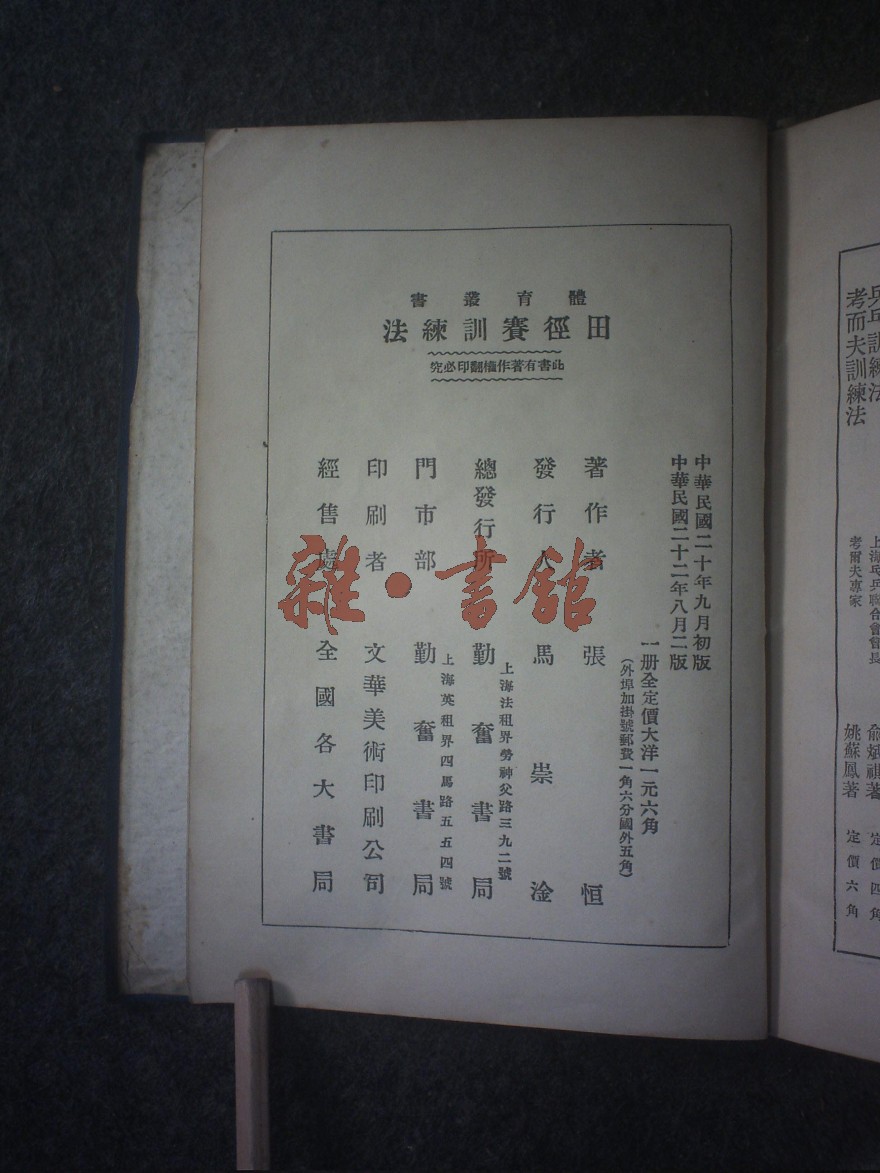 體育叢書
田徑賽訓練法
此書有著作權翻印必究
中華民國二十年九月初版
中華民國二十二年八月二版
一册全定價大洋一元六角
（外埠加掛號郵費一角六分國外五角）
著作者 張恒
發行人 馬崇淦
總發行所 勤奮書局
上海法租界勞神父路三九二號
門市部 勤奮書局
上海英租界四馬路五五四號
印刷者 文華美術印刷公司
經售處 全國各大書局
雜·書館
乒乓訓練法 上海乒乓聯合會會長 俞斌祺著 定價四角
考而夫訓練法 考爾夫專家 姚蘇鳳著 定價六角